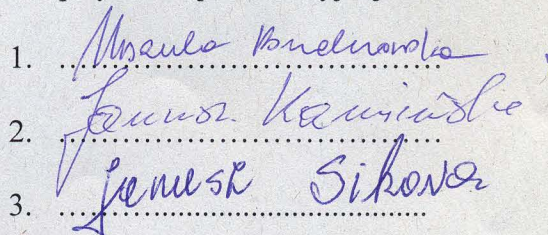 1. Urszula
2. Janusz Kamiński
3. Janusz Sikora